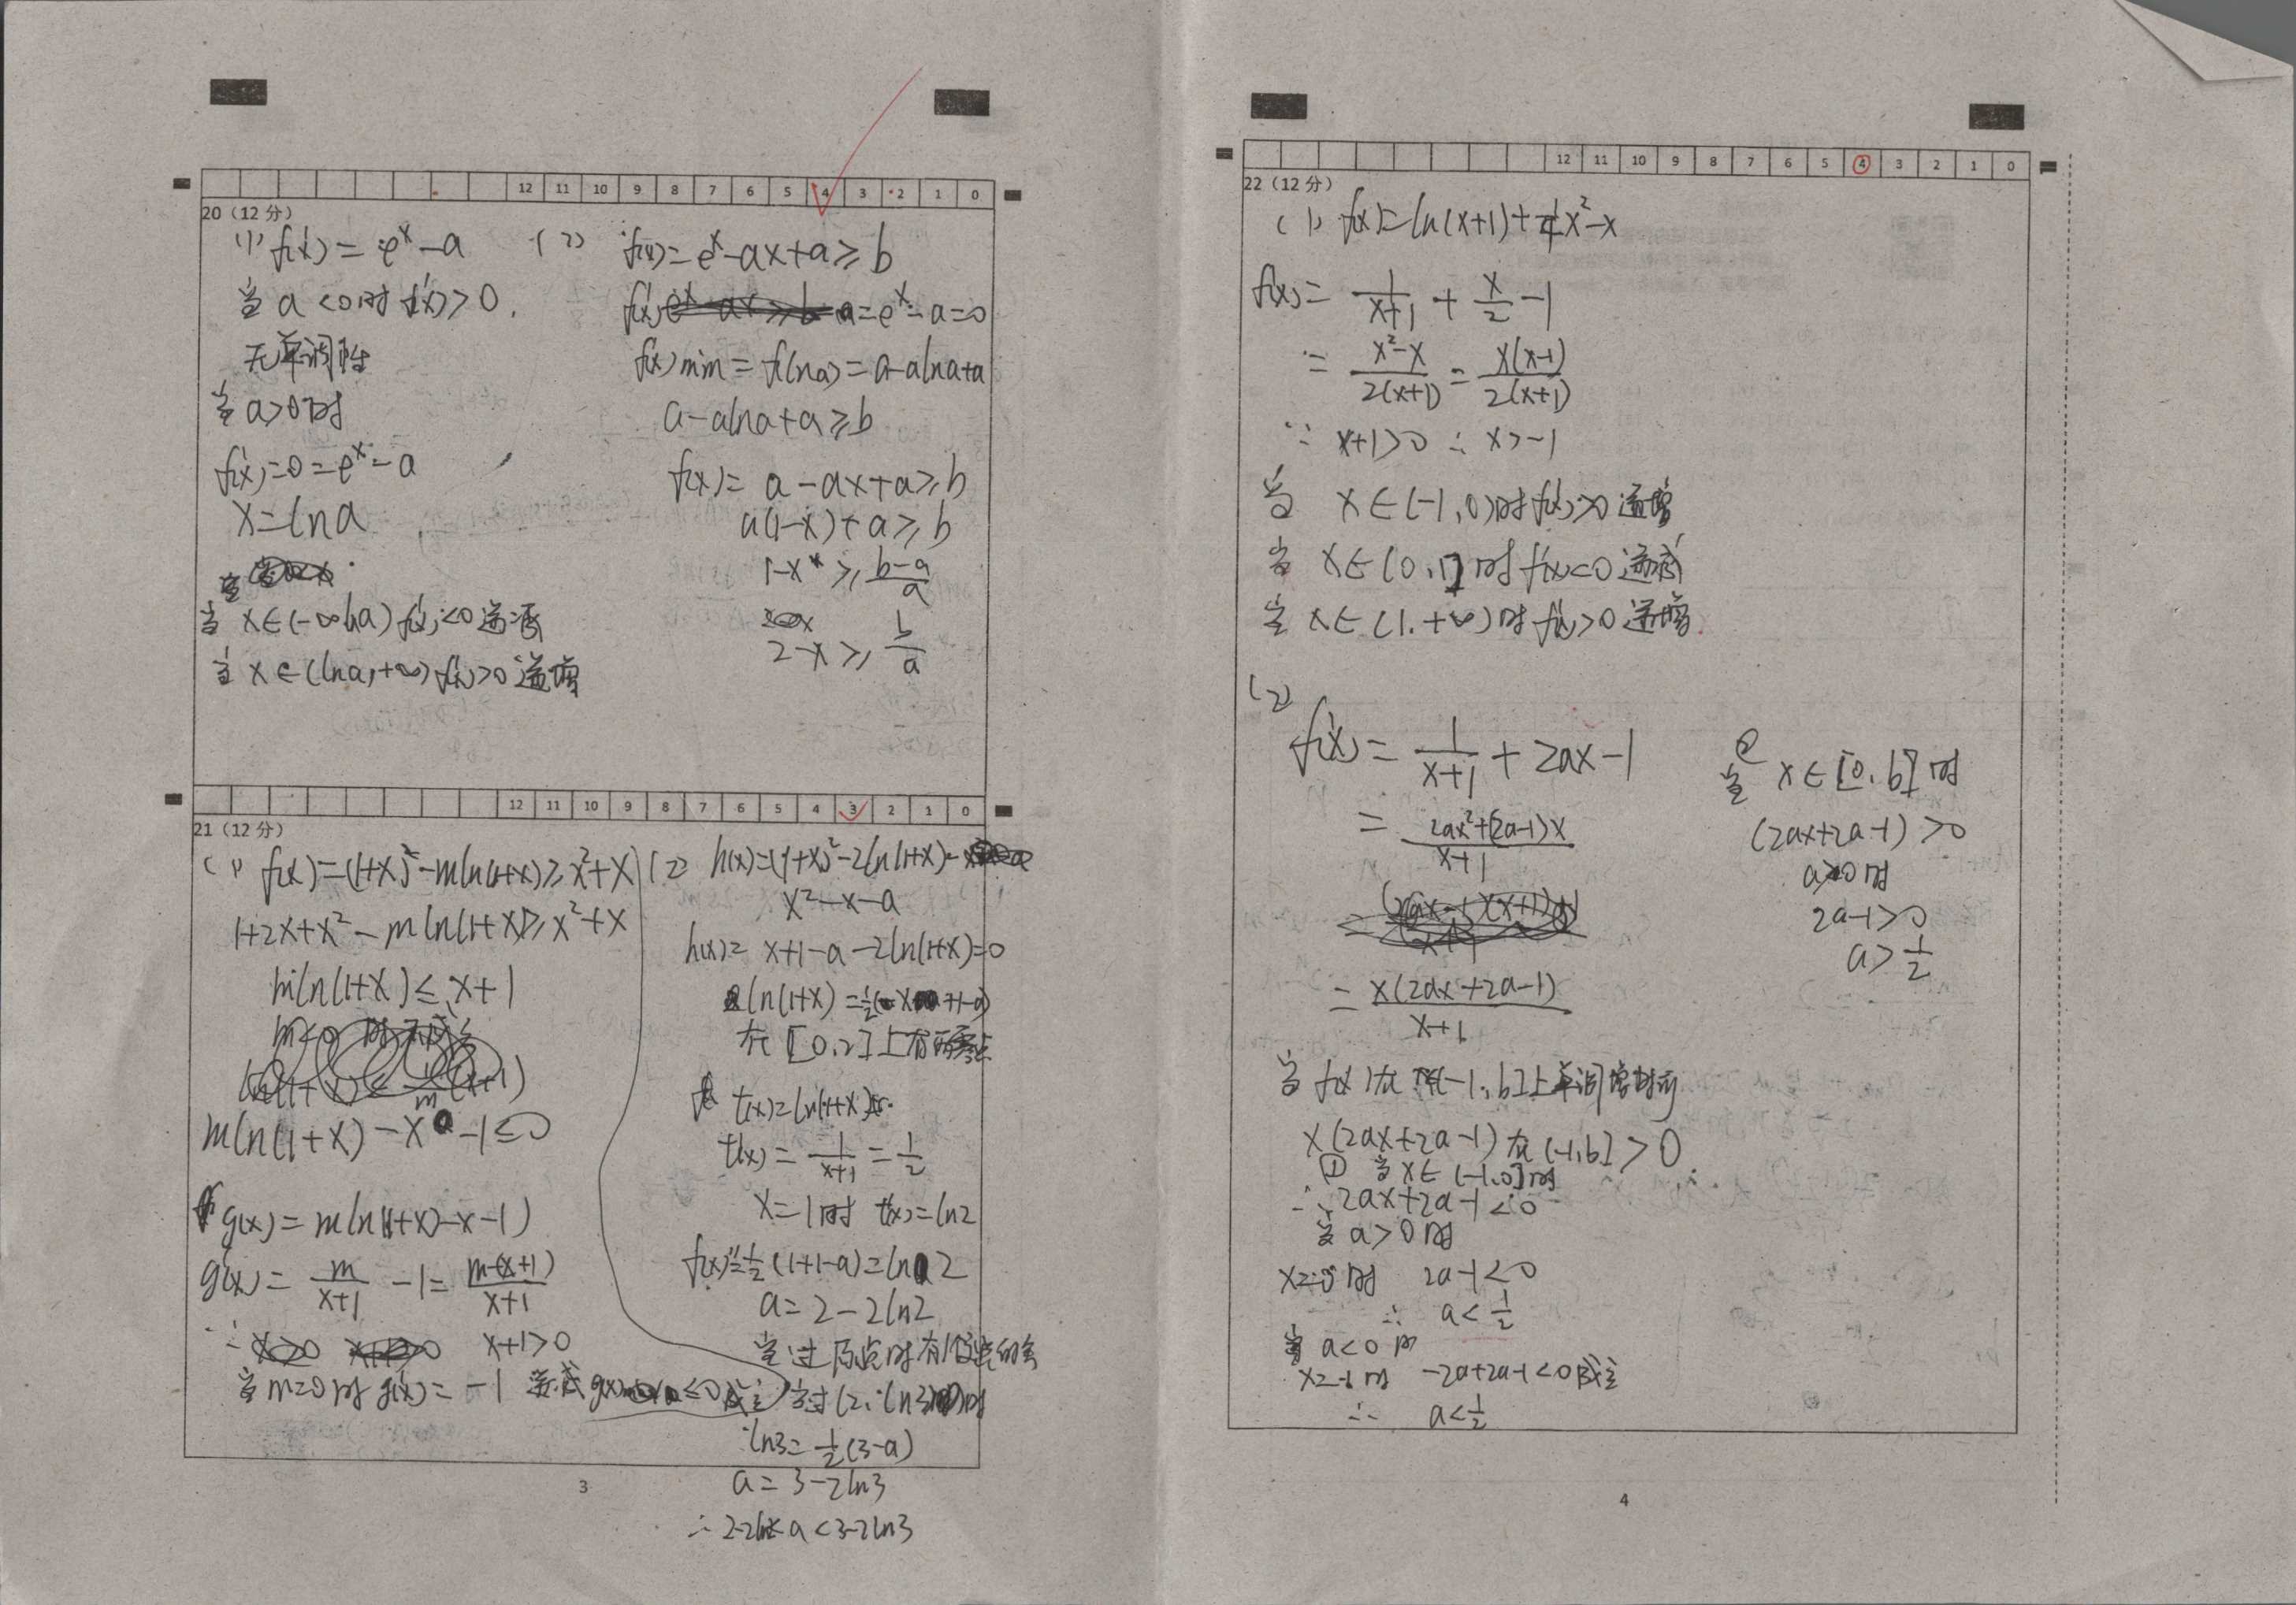 12 11 10 9 8 7 6 5 4 3 2 1 0
20（12 分）
(1) f'(x) = e^x - a
当 a < 0 时 f'(x) > 0.
无单调性
当 a > 0 时
f'(x) = 0 = e^x - a
x = ln a
当 x ∈ (-∞ ln a) f'(x) < 0 递减
当 x ∈ (ln a, +∞) f'(x) > 0 递增
(2) f(x) = e^x - ax + a ≥ b
f'(x) = e^x - a = 0
f(x) min = f(ln a) = a - a ln a + a
a - a ln a + a ≥ b
f(x) = a - ax + a ≥ b
a(1-x) + a ≥ b
1-x ≥ (b-a)/a
2-x ≥ b/a
12 11 10 9 8 7 6 5 4 3 2 1 0
21（12 分）
(1) f(x) = (1+x)² - m ln(1+x) ≥ x² + x
1+2x+x² - m ln(1+x) ≥ x² + x
m ln(1+x) ≤ x+1
m ln(1+x) - x - 1 ≤ 0
g(x) = m ln(1+x) - x - 1)
g'(x) = m/(x+1) - 1 = (m-(x+1))/(x+1)
∵ x+1 > 0
当 m=0 时 g'(x) = -1 递减 g(x) ≤ 0 成立
(2) h(x) = (1+x)² - 2ln(1+x) -
x² - x - a
h(x) = x+1-a-2ln(1+x) = 0
ln(1+x) = ½(x+1-a)
在 [0,2] 上有两零点
t(x) = ln(1+x)
t'(x) = 1/(x+1) = 1/2
x = 1 时 t(x) = ln2
f(x) = ½(1+1-a) = ln2
a = 2 - 2ln2
当过原点时有1个
当过 (2, ln3) 时
ln3 = ½(3-a)
a = 3 - 2ln3
∴ 2-2ln2 < a < 3-2ln3
3
12 11 10 9 8 7 6 5 4 3 2 1 0
22（12 分）
(1) f(x) = ln(x+1) + ¼x² - x
f'(x) = 1/(x+1) + x/2 - 1
= (x²-x)/(2(x+1)) = x(x-1)/(2(x+1))
∵ x+1 > 0 ∴ x > -1
当 x ∈ (-1, 0) 时 f'(x) > 0 递增
当 x ∈ (0, 1] 时 f'(x) < 0 递减
当 x ∈ (1, +∞) 时 f'(x) > 0 递增
(2)
f'(x) = 1/(x+1) + 2ax - 1
= (2ax²+(2a-1)x)/(x+1)
= x(2ax+2a-1)/(x+1)
当 f(x) 在 (-1, b] 上单调增时
x(2ax+2a-1) 在 (-1, b] > 0
① 当 x ∈ (-1, 0] 时
∴ 2ax+2a-1 < 0
当 a > 0 时
x=0 时 2a-1 < 0
∴ a < 1/2
当 a < 0 时
x=-1 时 -2a+2a-1 < 0 成立
∴ a < 1/2
②
当 x ∈ [0, b] 时
(2ax+2a-1) > 0
a>0 时
2a-1 > 0
a > 1/2
4